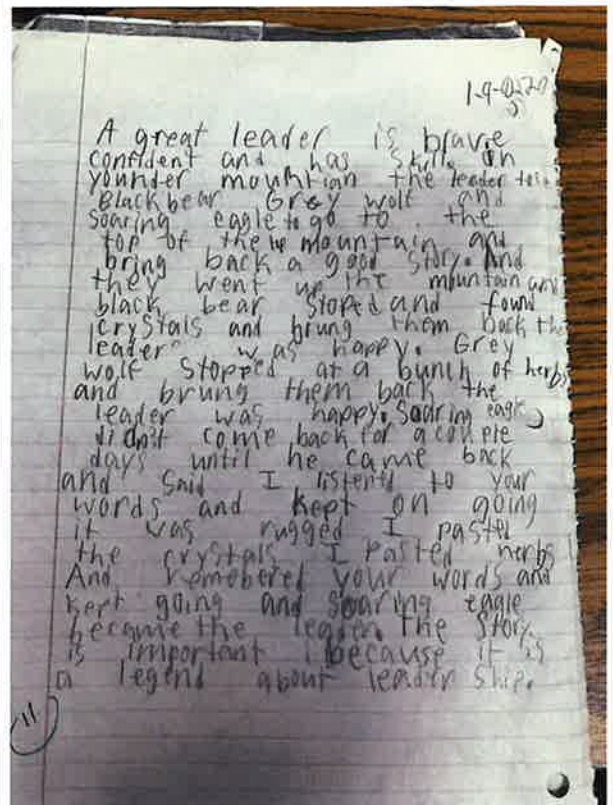 1-9-2020
A great leader is bravie
confident and has skill. On
younder mountian the leader told
Black bear Grey wolf and
soaring eagle to go to. the
top of the he mountain and
bring back a good story. And
they went up the mountain and
black bear stoped and found
crystals and brung them back the
leader was happy. Grey
wolf stopped at a bunch of herbs
and brung them back the
leader was happy. Soaring eagle
didn't come back for a couple
days until he came back
and said I listend to your
words and kept on going
it was rugged I pasted
the crystals I pasted herbs
And remobered your words and
kept going and soaring eagle
became the leader. The story
is important because it is
a legend about leader ship.
11